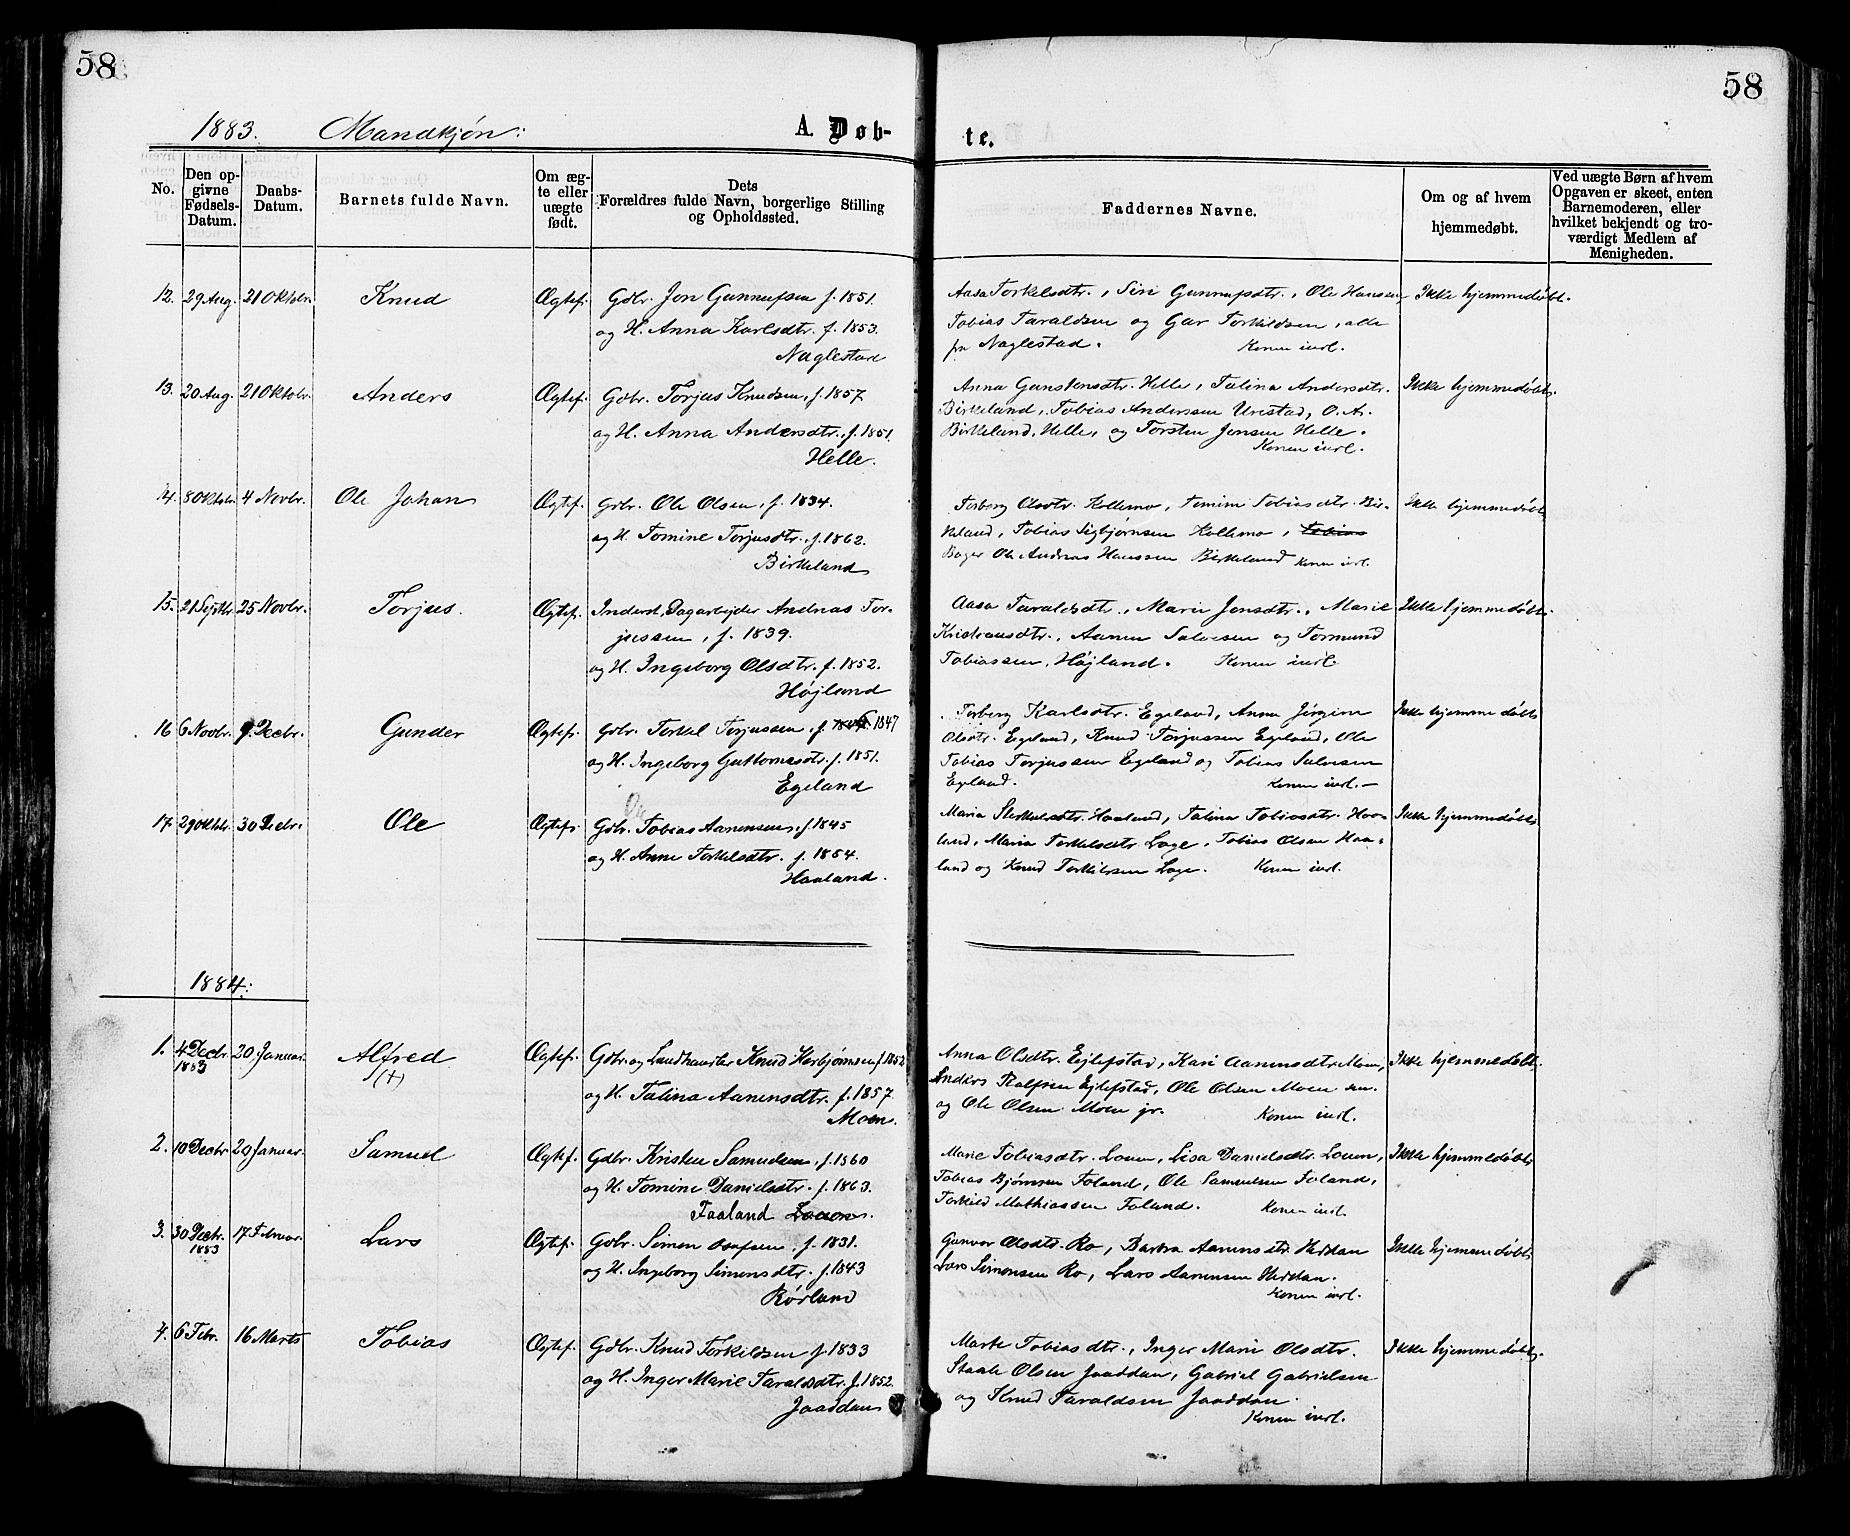 58
58
1883. Mandkjøn:
A. Døb-
te.
No.
Den op-
givne
Fødsels-
Datum.
Daabs-
Datum.
Barnets fulde Navn.
Om æg-
te eller
uægte
født.
Dets
Forældres fulde Navn, borgerlige Stilling
og Opholdssted.
Faddernes Navne.
Om og af hvem
hjemmedøbt.
Ved uægte Børn af hvem
Opgaven er skeet, enten
Barnemoderen, eller
hvilket bekjendt og tro-
værdigt Medlem af
Menigheden.
12. 29 Aug. 21 Oktobr. Knud Ægtef. Gdbr. Jon Gunnufsen f. 1851.
og H. Anna Karlsdtr. f. 1853.
Naglestad
Aasa Torkelsdtr., Siri Gunnufsdtr., Ole Hansen
Tobias Taraldsen og Torkildsen, alle
fra Naglestad. Konen indl.
Ikke hjemmedøbt.
13. 20 Aug. 21 Oktobr. Anders Ægtef. Gdbr. Torjus Knudsen, f. 1857
og H. Anna Andersdtr., f. 1851.
Helle.
Anna Gunstensdtr. Helle, Talina Andersdtr.
Birkeland, Tobias Anderssen Urestad, O. A.
Birkeland, Helle, og Torsten Jensen Helle.
Konen indl.
Ikke hjemmedøbt.
14. 8 Oktobr. 4 Novbr. Ole Johan Ægtef. Gdbr. Ole Olsen, f. 1834.
og H. Tomine Torjusdtr., f. 1862.
Birkeland
Torborg Olsdtr. Kollemo, Tomine Tobiasdtr. Bir-
keland, Tobias Sigbjørnsen Kollemo, Tobias
Ole Andreas Hanssen Birkeland Konen indl.
Ikke hjemmedøbt
15. 21 Septbr. 25 Novbr. Torjus. Ægtef. Inderst, Dagarbejder Andreas Tor-
jussen, f. 1839.
og H. Ingeborg Olsdtr. f. 1852.
Højland
Aasa Taraldsdtr., Marie Jensdtr., Marie
Kristiansdtr., Aanen Salvesen og Tormund
Tobiassen, Højland. Konen indl.
Ikke hjemmedøbt.
16 6 Novbr. 9 Decbr. Gunder Ægtef. Gdbr. Torkel Torjussen, f. 1847
og H. Ingeborg Guttormsdtr. f. 1851.
Egeland
Torborg Karlsdtr. Egeland, Anne Jørgine
Olsdtr. Egeland, Knud Torjussen Egeland, Ole
Tobias Torjussen Egeland og Tobias Salvesen
Egeland. Konen indl.
Ikke hjemmedøbt
17. 29 Oktbr. 30 Decbr. Ole Ægtef. Gdbr. Tobias Aanensen, f. 1845
og H. Anne Torkelsdtr. f. 1854.
Haaland.
Maria Haaland, Talina Tobiasdtr. Haa-
land, Maria Torkelsdtr. Loge, Tobias Olsen Haa-
land og Knud Torkilsen Loge. Konen indl.
Ikke hjemmedøbt
1884:
1. 4 Decbr. 20 Januar. Alfred Ægtef. Gdbr. og Landhandler Knud Herbjørnsen f. 1852
1883
(+)
og H. Talina Aanensdtr. f. 1857
Moen.
Anna Olsdtr. Ejlefstad, Kari Aanensdtr. Moen,
Anders Ejlefstad, Ole Olsen Moen sen.
og Ole Olsen Moen jr. Konen indl.
Ikke hjemmedøbt.
2. 10 Decbr. 20 Januar. Samuel Ægtef. Gdbr. Kristen Samuelsen, f. 1860
og H. Tomine Danielsdtr. f. 1863.
Faaland Louen.
Marie Tobiasdtr. Louen, Lisa Danielsdtr. Louen,
Tobias Bjørnsen Foland, Ole Samuelsen Foland,
Torkild Mathiassen Foland. Konen indl.
Ikke hjemmedøbt.
3. 30 Decbr. 17 Februar. Lars Ægtef. Gdbr. Simon Osufsen, f. 1831.
1883
og H. Ingeborg Simensdtr. f. 1843
Rørland
Gunvor Olsdtr. Ro, Barbra Aanensdtr. Heddan
Lars Simonsen Ro, Lars Aanensen Heddan.
Konen indl.
Ikke hjemmedøbt.
4. 6 Febr. 16 Marts Tobias Ægtef. Gdbr. Knud Torkildsen f. 1833
og H. Inger Marie Taraldsdtr. f. 1852.
Jaaddan
Marte Tobiasdtr., Inger Marie Olsdtr.
Staale Olsen Jaaddan, Gabriel Gabrielsen
og Knud Taraldsen Jaaddan.
Konen indl.
Ikke hjemmedøbt.